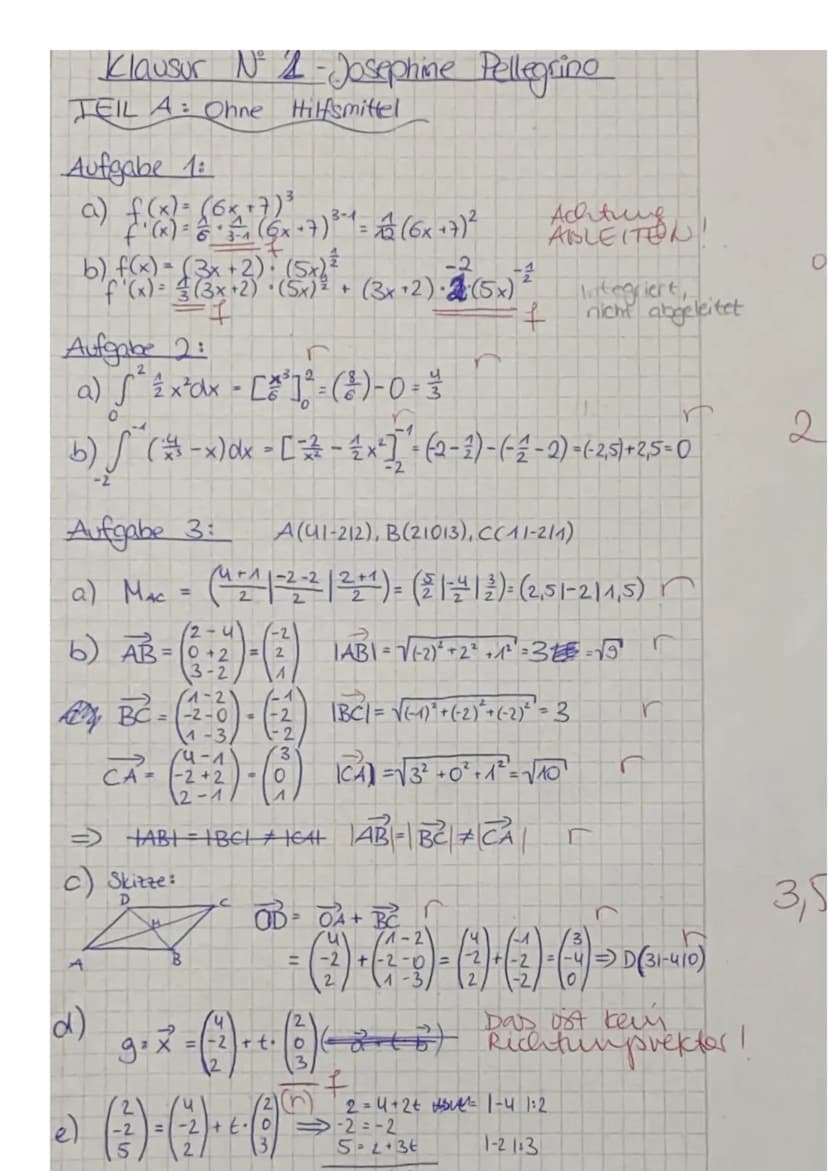 Klausur N° 1 - Josephine Pellegrino
TEIL A: Ohne Hilfsmittel
Aufgabe 1:
a) f(x) = (6x+7)³
f'(x) = 1/6 · 1/(3-1) (6x+7)³⁻¹ = 1/12 (6x+7)² f
Achtung
ABLEITEN!
0
b) f(x) = (3x+2) · (5x)^(1/2)
f'(x) = 1/3 (3x+2) · (5x)^(1/2) + (3x+2) · -2 (5x)^(-1/2) f f
Integriert,
nicht abgeleitet
Aufgabe 2: r r
a) ∫₀² 1/2 x² dx = [x³/6]₀² = (8/6) - 0 = 4/3
r r 2
b) ∫₋₂⁻¹ (4/x³ - x) dx = [-2/x² - 1/2 x²]₋₂⁻¹ = (-2 - 1/2) - (-1/2 - 2) = (-2,5) + 2,5 = 0
Aufgabe 3: A(4|-2|2), B(2|0|3), C(1|-2|1)
a) M_AC = ((4+1)/2 | (-2-2)/2 | (2+1)/2) = (5/2 | -4/2 | 3/2) = (2,5|-2|1,5) r
b) AB = (2-4, 0+2, 3-2) = (-2, 2, 1) |AB| = √((-2)²+2²+1²) = 3 = √9 r
BC = (1-2, -2-0, 1-3) = (-1, -2, -2) |BC| = √((-1)²+(-2)²+(-2)²) = 3 r
CA = (4-1, -2+2, 2-1) = (3, 0, 1) |CA| = √(3²+0²+1²) = √10 r
⇒ |AB| = |BC| ≠ |CA| |AB| = |BC| ≠ |CA| r
c) Skizze:
3,5
D C
M
A B
OD = OA + BC r r r
= (4, -2, 2) + (1-2, -2-0, 1-3) = (4, -2, 2) + (-1, -2, -2) = (3, -4, 0) ⇒ D(3|-4|0)
d) g: x = (4, -2, 2) + t · (2, 0, 3) (a + t b) f
Das ist kein
Richtungsvektor!
e) (2, -2, 5) = (4, -2, 2) + t · (2, 0, 3) (r) ⇒ 2 = 4+2t |-4 |:2
-2 = -2
5 = 2+3t |-2 |:3